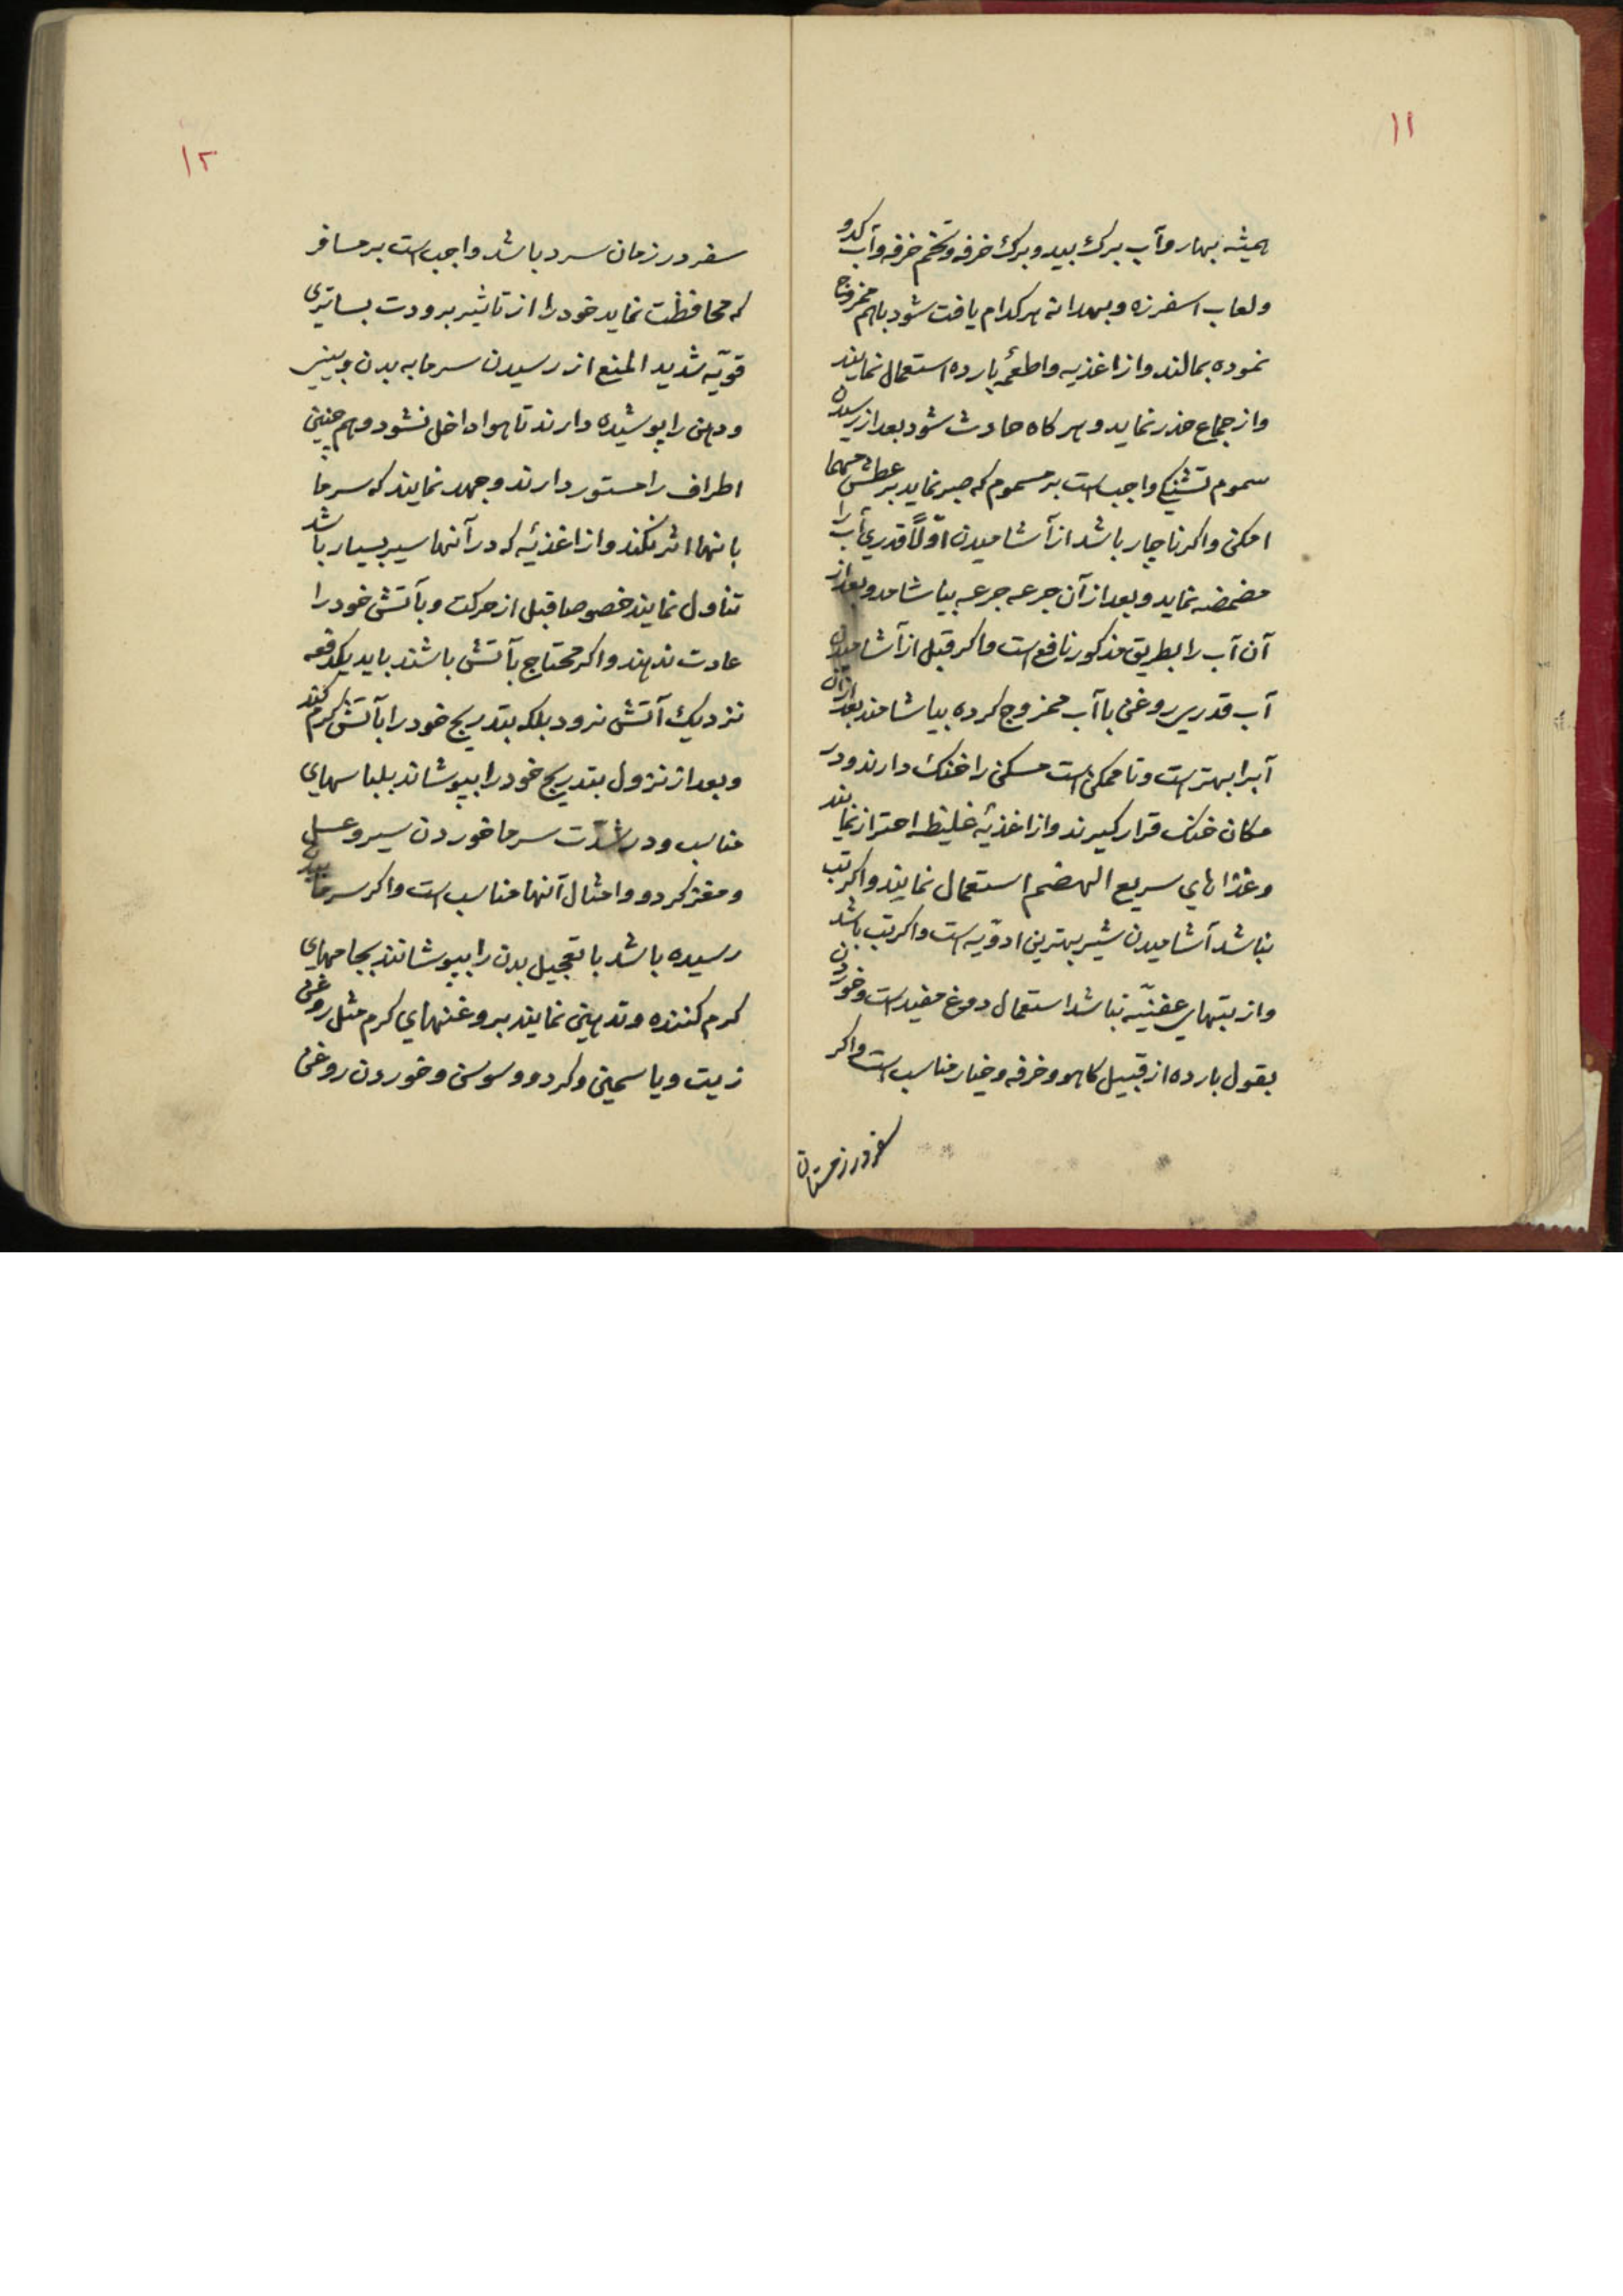 ۱۱
همیشه بهار و آب برك بید و برك خرفه و تخم خرفه و آب کدو
و لعاب اسفرزه و بهدانه هر کدام یافت شود باهم ممزوج
نموده بمالند و از اغذیه و اطعمهٔ بارده استعمال نمایند
و از جماع حذر نماید و هر کاه حادث شود بعد از رسیدن
سموم تشنکی واجب است بر مسموم که صبر نماید بر عطش مهما
امکن و اکر ناچار باشد از آشامیدن اوّلاً قدری آب را
مضمضه نماید و بعد از آن جرعه جرعه بیاشامد و بعد از
آن آب را بطریق مذکور نافع است و اکر قبل از آشامیدن
آب قدری روغن با آب ممزوج کرده بیاشامند بعد از آن
آبرا بهتر است و تا ممکن است مسکن را خنك دارند و در
مکان خنك قرار کیرند و از اغذیهٔ غلیظه احتراز نمایند
و غذاهای سریع الهضم استعمال نمایند و اکر تب
نباشد آشامیدن شیر بهترین ادویه است و اکر تب باشد
و از تبهای عفنیّه نباشد استعمال دوغ مفید است و خوردن
بقول بارده از قبیل کاهو و خرفه و خیار مناسب است و اکر
سفر در زمستان
۱۲
سفر در زمان سرد باشد واجب است بر مسافر
که محافظت نماید خود را از تاثیر برودت بساتری
قویّه شدید المنع از رسیدن سرما به بدن و بینی
و دهن را پوشیده دارند تا هوا داخل نشود و هم چنین
اطراف را مستور دارند و جهد نمایند که سرما
بانها اثر نکند و از اغذیهٔ که در آنها سیر بسیار باشد
تناول نمایند خصوصا قبل از حرکت و بآتش خود را
عادت ندهند و اکر محتاج بآتش باشند باید یکدفعه
نزدیك آتش نرود بلکه بتدریج خود را بآتش کرم کنند
و بعد از نزول بتدریج خود را بپوشاند بلباسهای
مناسب و در شدّت سرما خوردن سیر و عسل
و مغز کردو و امثال آنها مناسب است و اکر سرما ببدن
رسیده باشد با تعجیل بدن را بپوشانند بجامهای
کرم کننده و تدهین نمایند بروغنهای کرم مثل روغن
زیت و یاسمین و کردو و سوسن و خوردن روغن